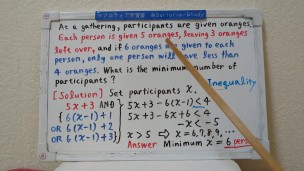 At a gathering, participants are given oranges.
Each person is given 5 oranges, leaving 3 oranges
left over, and if 6 oranges are given to each
person, only one person will have less than
4 oranges. What is the minimum number of
participants?
Inequality
[Solution] Set participants X,
5x+3 AND
{ 6(x-1)+1
OR 6(x-1)+2
OR 6(x-1)+3 }
5x+3-6(x-1)<4
5x+3-6x+6<4
-x<-5
x>5 ⇒ x=6,7,8,9,...
Answer Minimum x=6